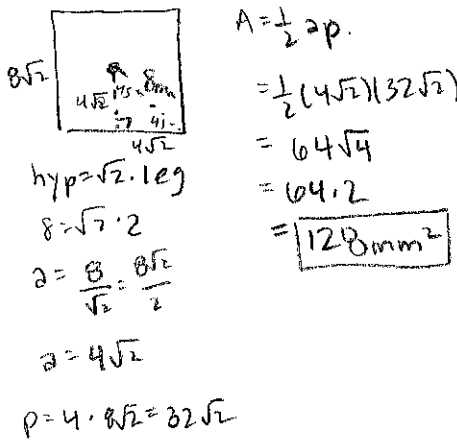 8√2
4√2 45 8mm
45
4√2
hyp=√2·leg
8=√2·a
a= 8/√2 = 8√2/2
a= 4√2
p=4·8√2=32√2
A=½ap.
=½(4√2)(32√2)
= 64√4
= 64·2
= 128mm²